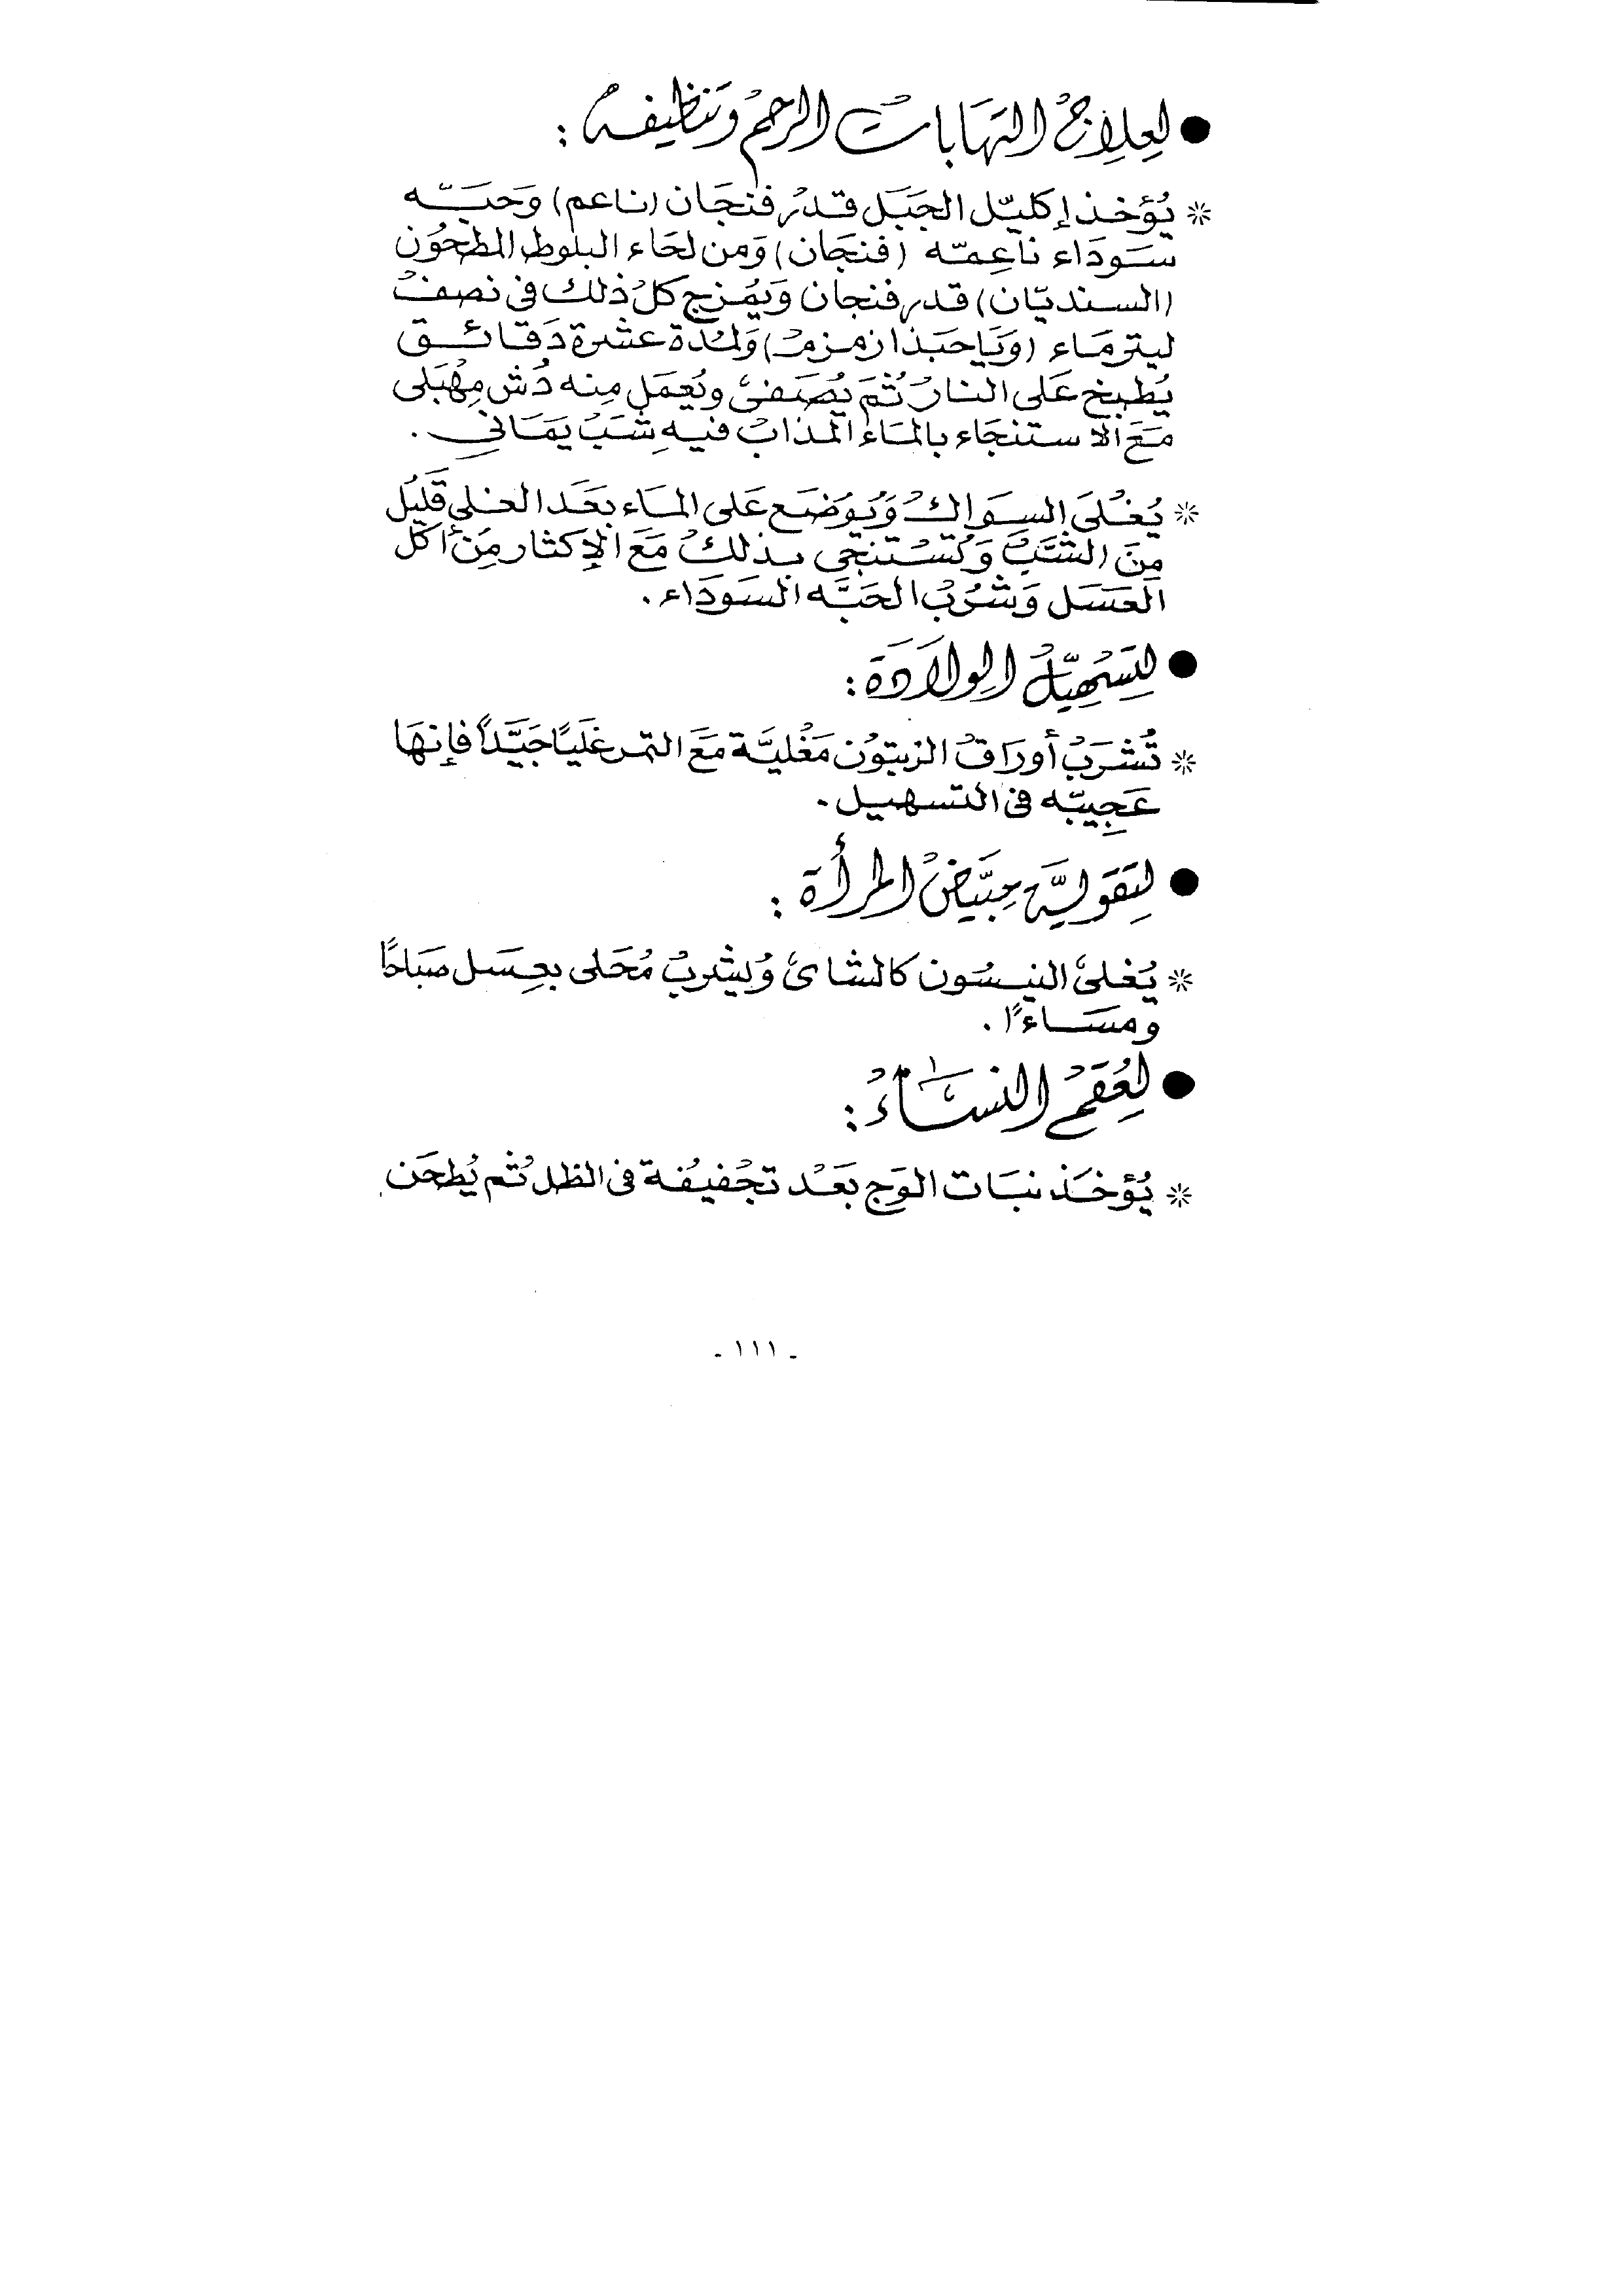 ● لعلاج التهابات الرحم وتنظيفه :
* يُؤخذ إكليل الجبَل قدر فنجَان (ناعم) وَحبَّه
سَودَاء ناعِمّه (فنجَان) وَمن لحَاء البلوط المطحُون
(السنديّان) قدر فنجان وَيمُزج كلُ ذلك فى نصفْ
ليتر مَاء (وَيَاحبَذا زمزمْ) وَلمُدة عشرة دَقائق
يُطبخ عَلى النارْ ثُمَ يُصَفىَّ ويُعمَل مِنه دُش مِهْبَلى
مَعَ الاستنجَاء بالمَاء المذابْ فيهِ شبَْ يَمَاني .
* يُغْلىَ السِوَاكْ وَيُوَضَع عَلى المَاء بعَد الغلى قَليُل
مِنَ الشَّبْ وَتُسْتنجى بذلكْ مَعَ الإكثار مِن أكل
العَسَل وَشرُبْ الحَبَّه السَودَاء .
● لتِسَهْيّلْ الوِلاَدَة :
* تُشرَبْ أورَاقْ الزيتوُن مَغْليَّة مَعَ التمر غلَيًا جَيَّداً فإنهَا
عَجِيبّه فى التسهيل .
● لتِقَويَّة مِبيَّضْ المرأة :
* يُغلىَّ الينسُون كالشاىَّ وُيشربْ مُحَلى بعِسَل صَبَاحًا
ومسَاءًا .
● لعُقمْ النسَاءْ :
* يُؤخَذ نبَات الوَج بعَدْ تجُفيفُة فى الظل ثُم يُطحَن
- ١١١ -